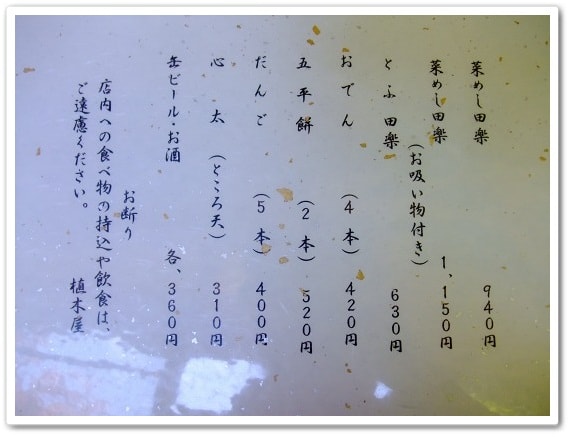 菜めし田楽 940円
菜めし田楽(お吸い物付き) 1,150円
とふ田楽 630円
おでん (4本) 420円
五平餅 (2本) 520円
だんご (5本) 400円
心太 (ところ天) 310円
缶ビール・お酒 各、360円
お断り
店内への食べ物の持込や飲食は、
ご遠慮ください。
植木屋